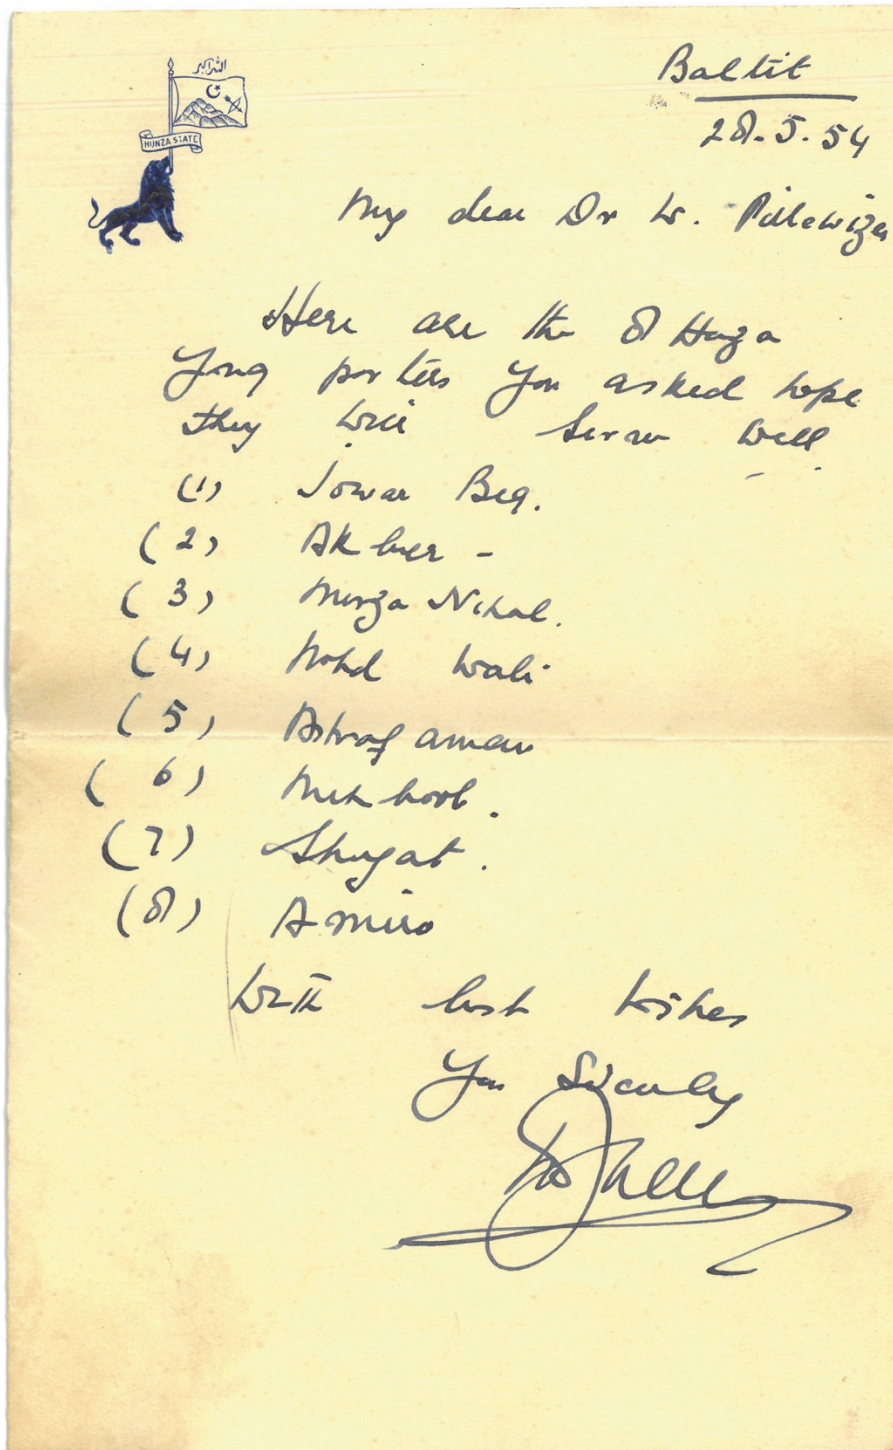 الله اکبر
HUNZA STATE
Baltit
28.5.54
My dear Dr W. Pillewizer
Here are the 8 Hunza
Yong porters you asked hope
they will serve well
(1) Jowar Beg.
(2) Akber -
(3) Mirza Nihal.
(4) Mohd Wali
(5) Ashraf aman
(6)
(7) Shujat.
(8) Amiro
With best wishes
Your Sincerely